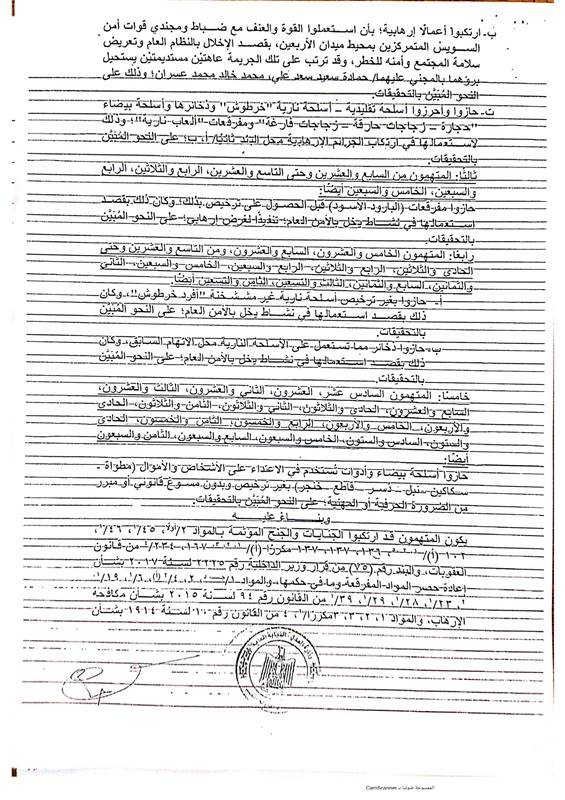 ب- ارتكبوا أعمالًا إرهابية؛ بأن استعملوا القوة والعنف مع ضباط ومجندي قوات أمن
السويس المتمركزين بمحيط ميدان الأربعين، بقصد الإخلال بالنظام العام وتعريض
سلامة المجتمع وأمنه للخطر، وقد ترتب على تلك الجريمة عاهتين مستديمتين يستحيل
برؤهما بالمجني عليهما/ حمادة سعيد سعد علي، محمد خالد محمد عسران؛ وذلك على
النحو المُبَيَّن بالتحقيقات.
ت- حازوا وأحرزوا أسلحة تقليدية – أسلحة نارية "خرطوش" وذخائرها وأسلحة بيضاء
"حجارة – زجاجات حارقة – زجاجات فارغة" ومفرقعات "ألعاب نارية"؛ وذلك
لاستعمالها في ارتكاب الجرائم الإرهابية محل البند ثانيًا/ أ، ب؛ على النحو المُبَيَّن
بالتحقيقات.
ثالثًا: المتهمون من السابع والعشرين وحتى التاسع والعشرين، الرابع والثلاثين، الرابع
والسبعين، الخامس والسبعين أيضًا:
حازوا مفرقعات (البارود الأسود) قبل الحصول على ترخيص بذلك؛ وكان ذلك بقصد
استعمالها في نشاط يخل بالأمن العام؛ تنفيذًا لغرض إرهابي؛ على النحو المُبَيَّن
بالتحقيقات.
رابعًا: المتهمون الخامس والعشرون، السابع والعشرون، ومن التاسع والعشرين وحتى
الحادي والثلاثين، الرابع والثلاثين، الرابع والسبعين، الخامس والسبعين، الثاني
والثمانين، السابع والثمانين، الثالث والتسعين، الثامن والتسعين أيضًا:
أ- حازوا بغير ترخيص أسلحة نارية غير مششخنة "أفرد خرطوش"، وكان
ذلك بقصد استعمالها في نشاط يخل بالأمن العام؛ على النحو المُبَيَّن
بالتحقيقات.
ب- حازوا ذخائر مما تستعمل على الأسلحة النارية محل الاتهام السابق، وكان
ذلك بقصد استعمالها في نشاط يخل بالأمن العام؛ على النحو المُبَيَّن
بالتحقيقات.
خامسًا: المتهمون السادس عشر، العشرون، الثاني والعشرون، الثالث والعشرون،
السابع والعشرون، الحادي والثلاثون، الثاني والثلاثون، الثامن والثلاثون، الحادي
والأربعون، الخامس والأربعون، الرابع والخمسون، الثامن والخمسون، الحادي
والستون، السادس والستون، الخامس والسبعون، السابع والسبعون، الثامن والسبعون
أيضًا:
حازوا أسلحة بيضاء وأدوات تُستخدم في الاعتداء على الأشخاص والأموال (مطواة –
سكاكين – نبل – دسر – قاطع – خنجر) بغير ترخيص وبدون مسوغ قانوني أو مبرر
من الضرورة الحرفية أو المهنية؛ على النحو المُبَيَّن بالتحقيقات.
وبناءً عليه
يكون المتهمون قد ارتكبوا الجنايات والجنح المؤثمة بالمواد
من قانون
العقوبات، والبند رقم (٧٥) من قرار وزير الداخلية رقم ٢٢٢٥ لسنة ٢٠١٧ بشأن
إعادة حصر المواد المفرقعة وما في حكمها، والمواد
من القانون رقم ٩٤ لسنة ٢٠١٥ بشأن مكافحة
الإرهاب، والمواد ١، ٢، ٣، ٣مكررًا/١، ٤ من القانون رقم ١٠ لسنة ١٩١٤ بشأن
الممسوحة ضوئيا بـ CamScanner